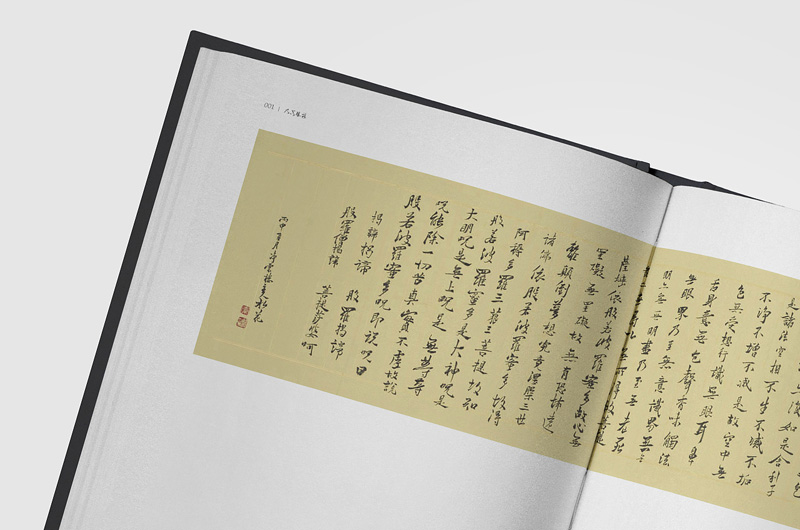 如是舍利子
是諸法空相不生不滅不垢
不淨不增不減是故空中無
色無受想行識無眼耳鼻
舌身意無色聲香味觸法
無眼界乃至無意識界無無
明亦無無明盡乃至無老死
薩埵依般若波羅蜜多故心無
罣礙無罣礙故無有恐怖遠
離顛倒夢想究竟涅槃三世
諸佛依般若波羅蜜多故得
阿耨多羅三藐三菩提故知
般若波羅蜜多是大神咒是
大明咒是無上咒是無等等
咒能除一切苦真實不虛故說
般若波羅蜜多咒即說咒曰
揭諦揭諦 般羅揭諦
般羅僧揭諦 菩提薩婆呵
丙申
001 |